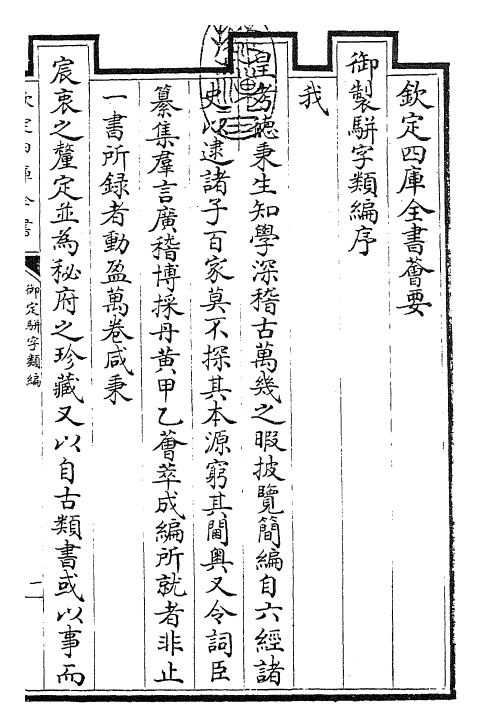 欽定四庫全書薈要
御製駢字類編序
我
皇考德秉生知學深稽古萬幾之暇披覽簡編自六經諸
史以逮諸子百家莫不探其本源窮其閫奥又令詞臣
纂集羣言廣稽博採丹黄甲乙薈萃成編所就者非止
一書所録者動盈萬卷咸秉
宸衷之釐定並為秘府之珍藏又以自古類書或以事而
欽定四庫全書
御定駢字類編
二